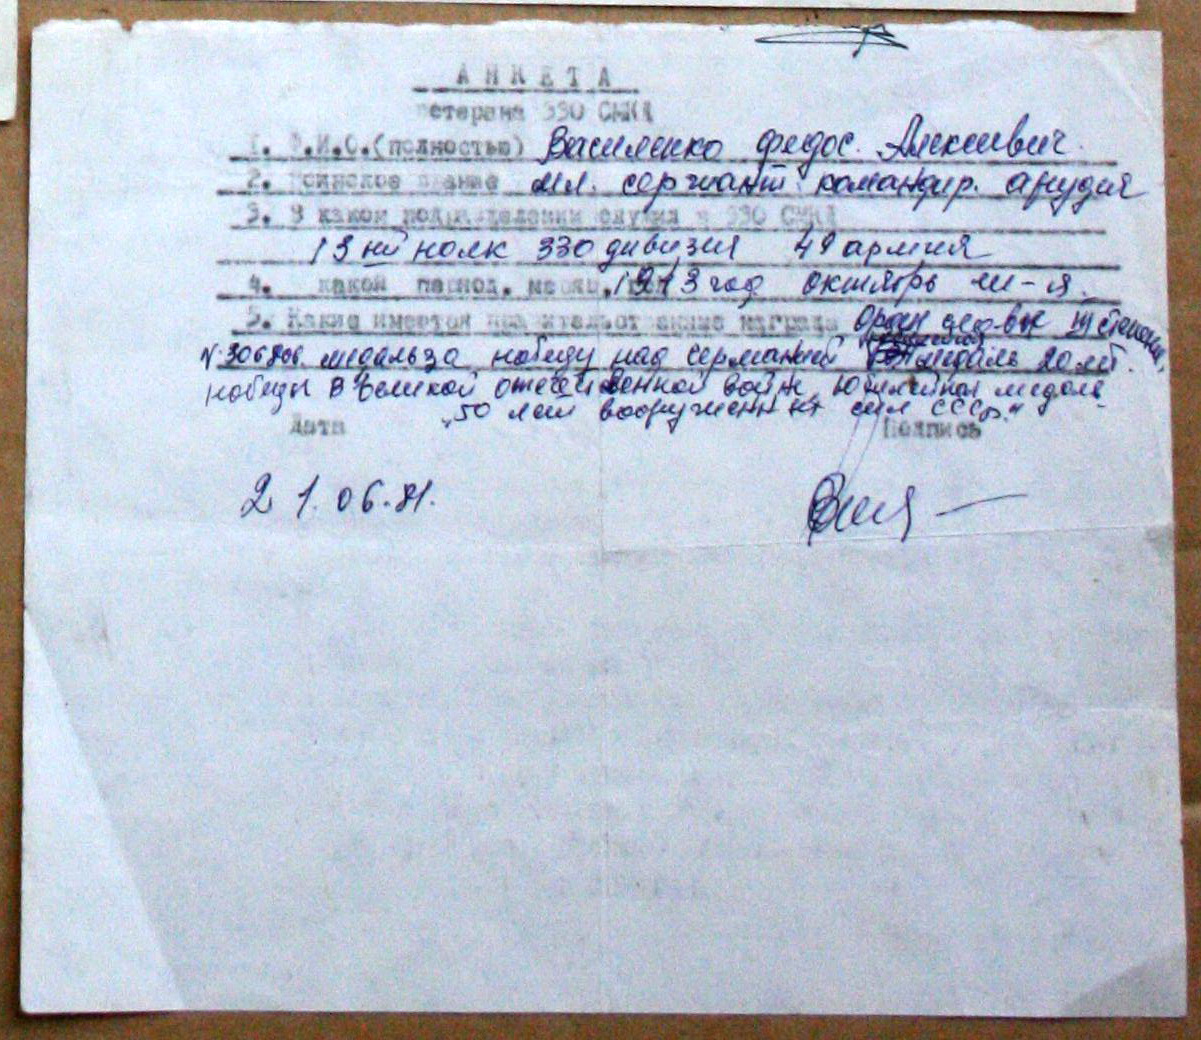 АНКЕТА
ветерана 330 СМКД
1. Ф.И.О.(полностью) Василенко Федос. Алексеевич.
2. Воинское звание мл. сержант. командир. арудия
3. В каком подразделении служил в 330 СМКД
13 ий полк 330 дивизия 49 армия
4. какой период, 1943 год октябрь м-я.
5. Какие имеются правительственные награды Орден славы III степени,
N. медаль за победу над германией медаль 20 лет.
победы в Великой отечественной войне, Юбилейная медаль
"50 лет вооруженных сил СССР."
Дата Подпись
21.06.81.